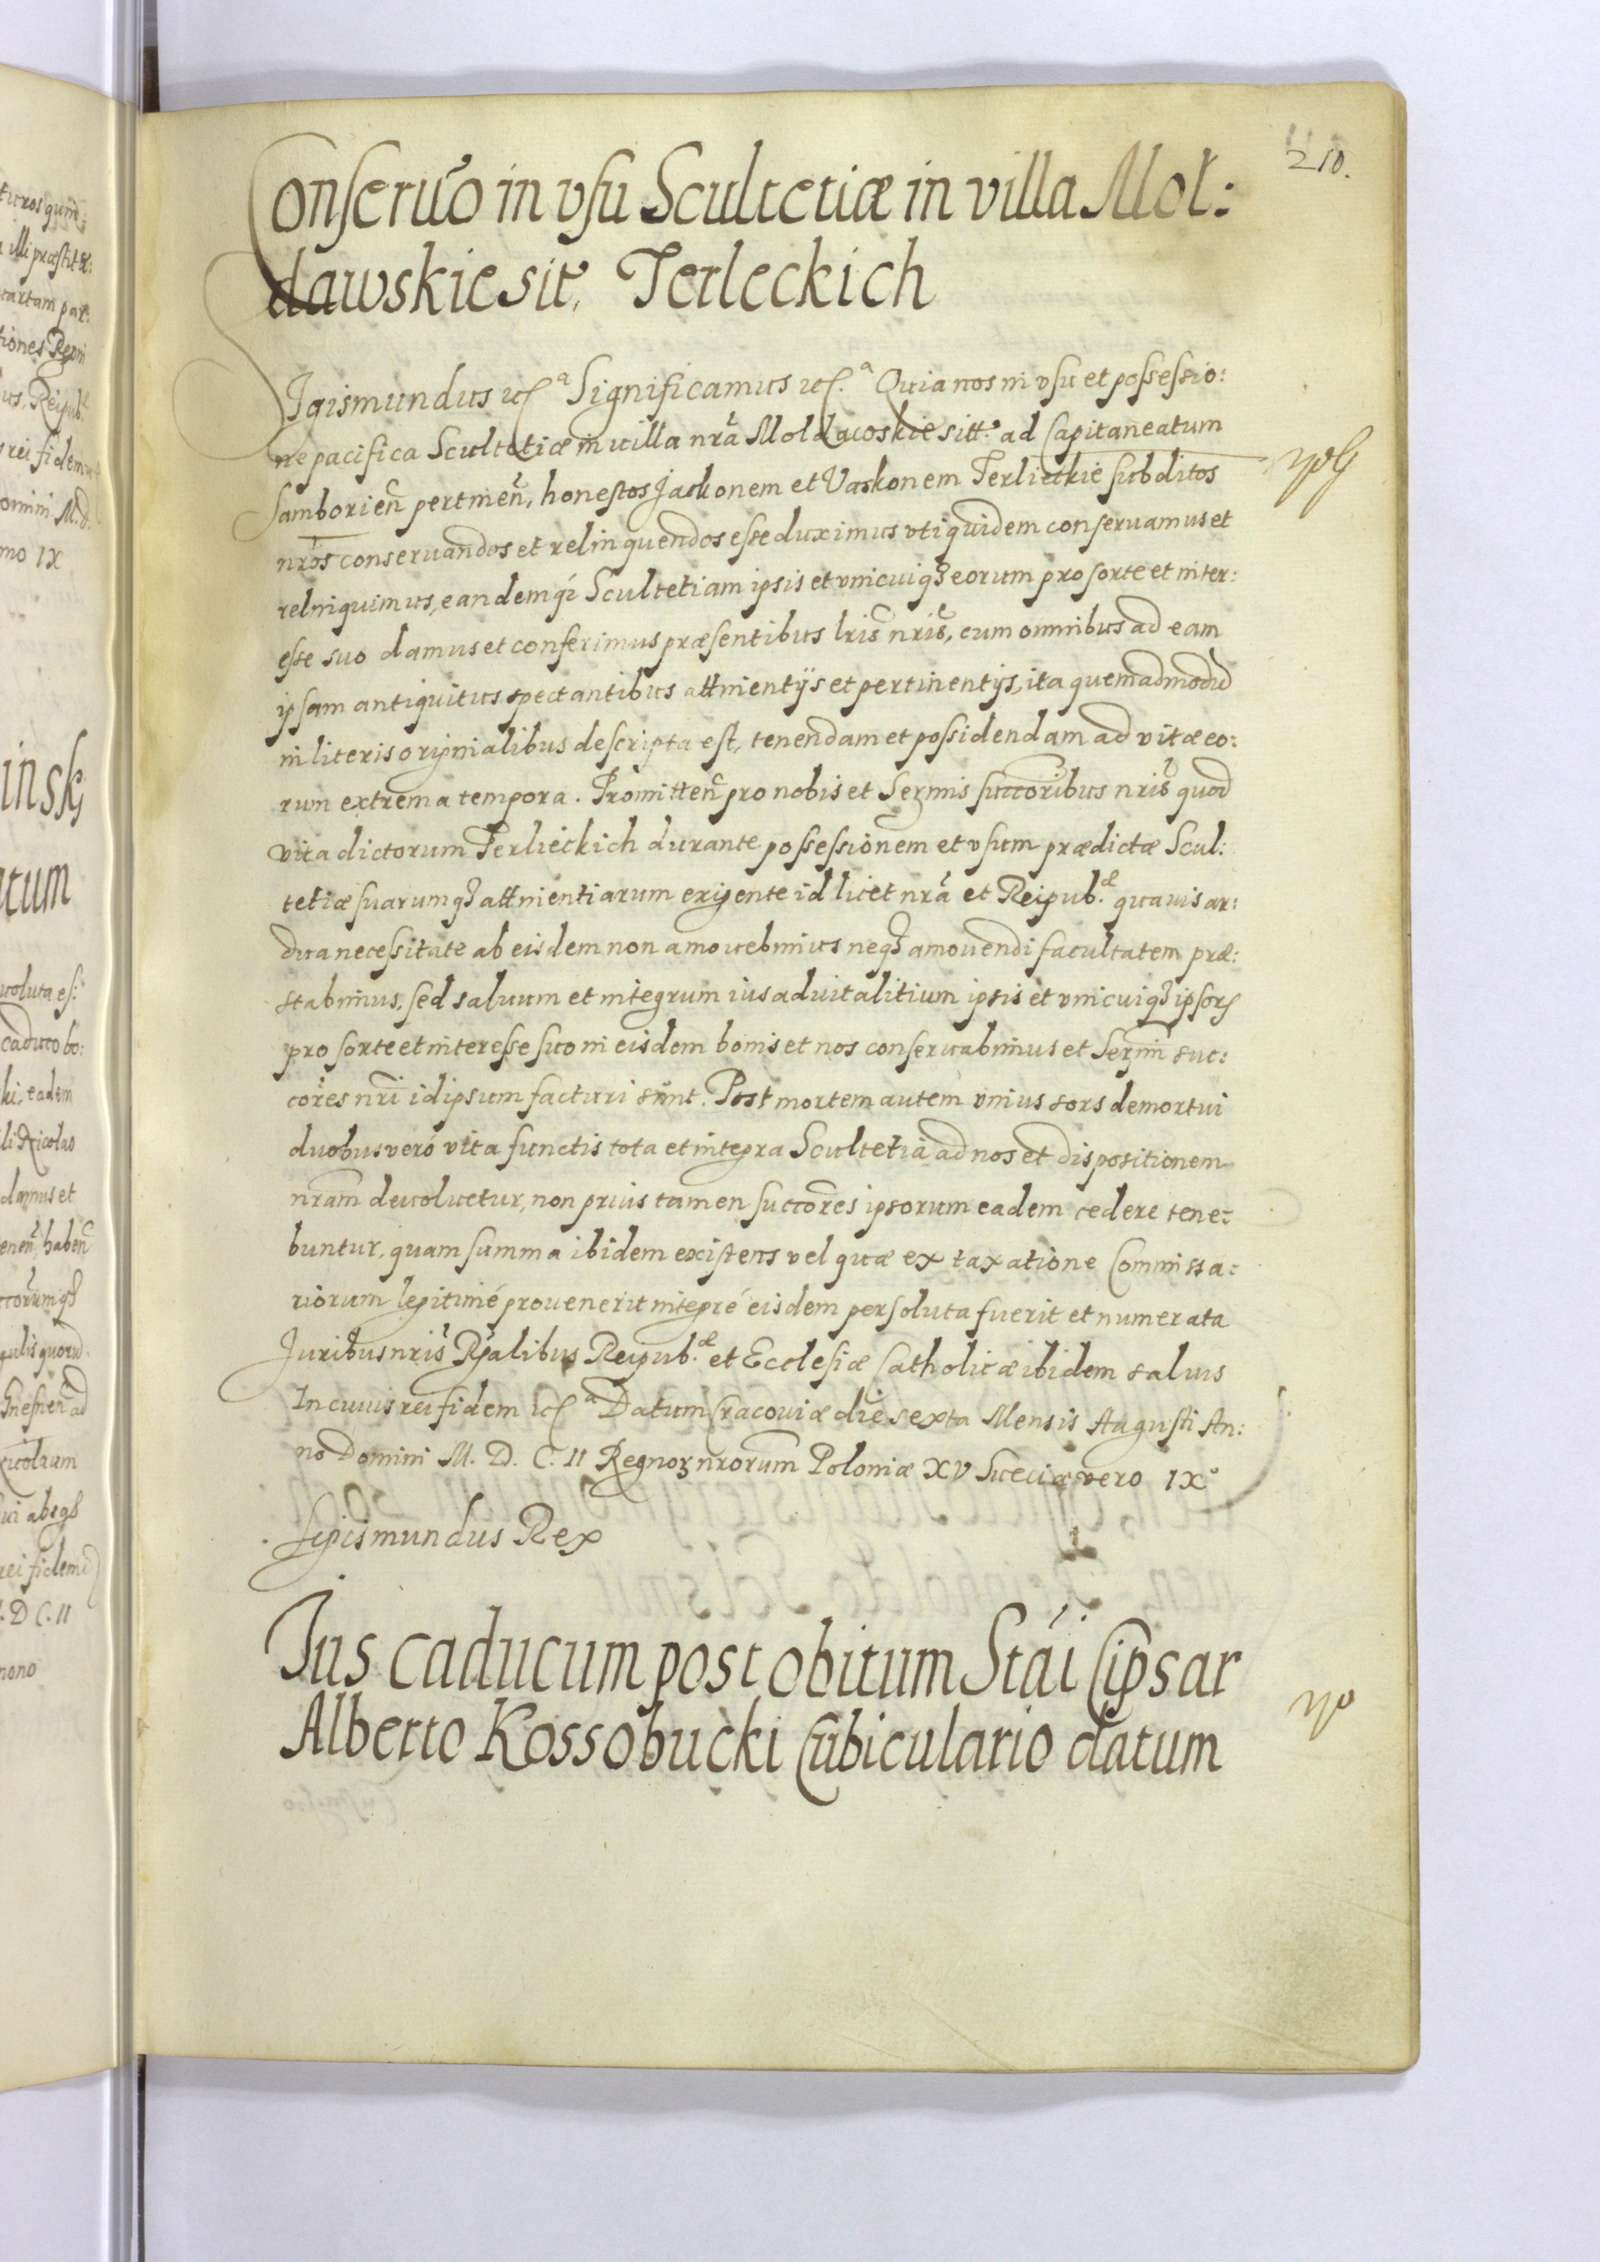 210.
Conseruo in vsu Scultetiæ in villa Mol:
dawskie sit, Terleckich
Sigismundus etc Significamus etc. Quia nos in vsu et possessio:
ne pacifica Scultetiæ in uilla nrã Moldawskie sitt. ad Capitaneatum
Samborien̄ pertinen̄, honestos Jackonem et Vaskonem Terlieckie subditos
nros conseruandos et relinquendos esse duximus vti quidem conseruamus et
relinquimus, eandemq́ Scultetiam ipsis et vnicuiqȝ eorum pro sorte et inter:
esse suo damus et conferimus præsentibus lris nris, cum omnibus ad eam
ipsam antiquitus spectantibus attinentijs et pertinentijs, ita quemadmodū
in literis originialibus descripta est, tenendam et possidendam ad vitæ eo:
rum extrema tempora. Promitten̄ pro nobis et Sermis succoribus nris quod
vita dictorum Terlieckich durante possessionem et vsum prædictæ Scul:
tetiæ suarumqȝ attinentiarum exigente id licet nrã et Reipub.æ quauis ar:
dua necessitate ab eisdem non amouebimus neqȝ amouendi facultatem præ:
stabimus, sed saluum et integrum ius aduitalitium ipsis et vnicuiqȝ ipsorꝝ
pro sorte et interesse suo in eisdem bonis et nos conseruabimus et Sermi suc:
cores nri idipsum facturi sunt. Post mortem autem vnius sors demortui
duobus veró vita functis tota et integra Scultetia ad nos et dispositionem
nram deuoluetur, non prius tamen succores ipsorum eadem cedere tene:
buntur, quam summa ibidem existens vel quæ ex taxatione Commissa:
riorum legitimé prouenerit integré eisdem persoluta fuerit et numerata
Juribus nris Rgalibus Reipub.æ et Ecclesiæ Catholicæ ibidem saluis
In cuius rei fidem etc Datum Cracouiæ die sexta Mensis Augusti An:
no Domini M. D. C. II Regnoꝝ nrorum Poloniæ XV Sueciæ vero IX°
Sigismundus Rex
Ius caducum post obitum Stái Cipsar
Alberto Kossobucki Cubiculario datum